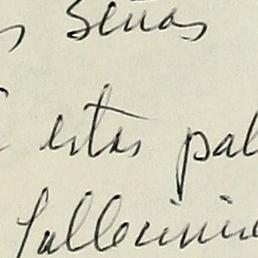 señas
estas pal
fallecimie